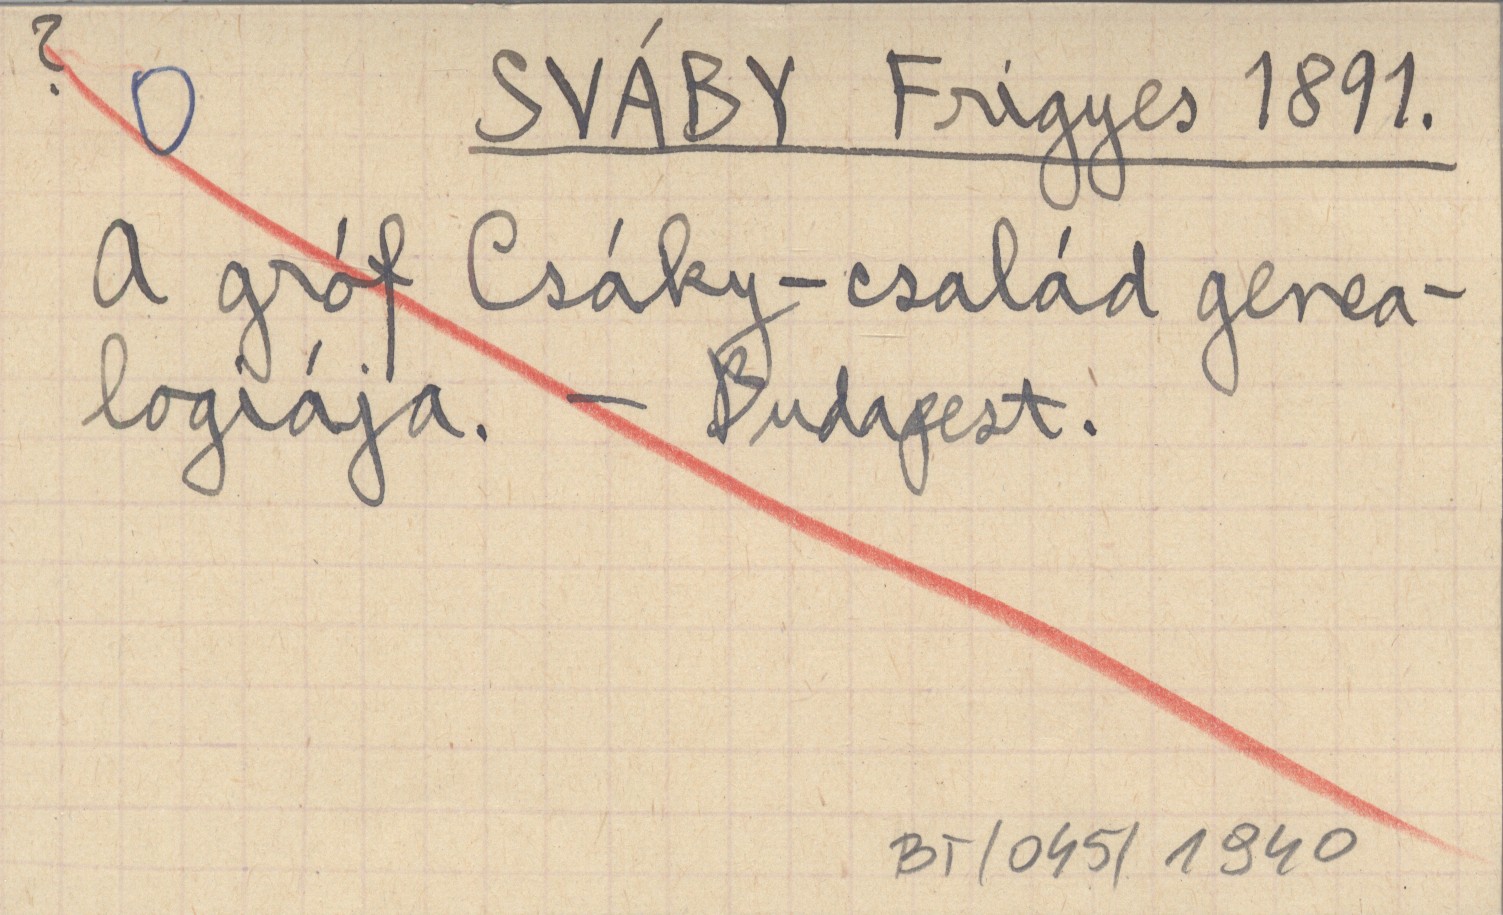 ?
O
SVÁBY Frigyes 1891.
A gróf Csáky-család genea-
logiája. — Budapest.
BT/045/1940